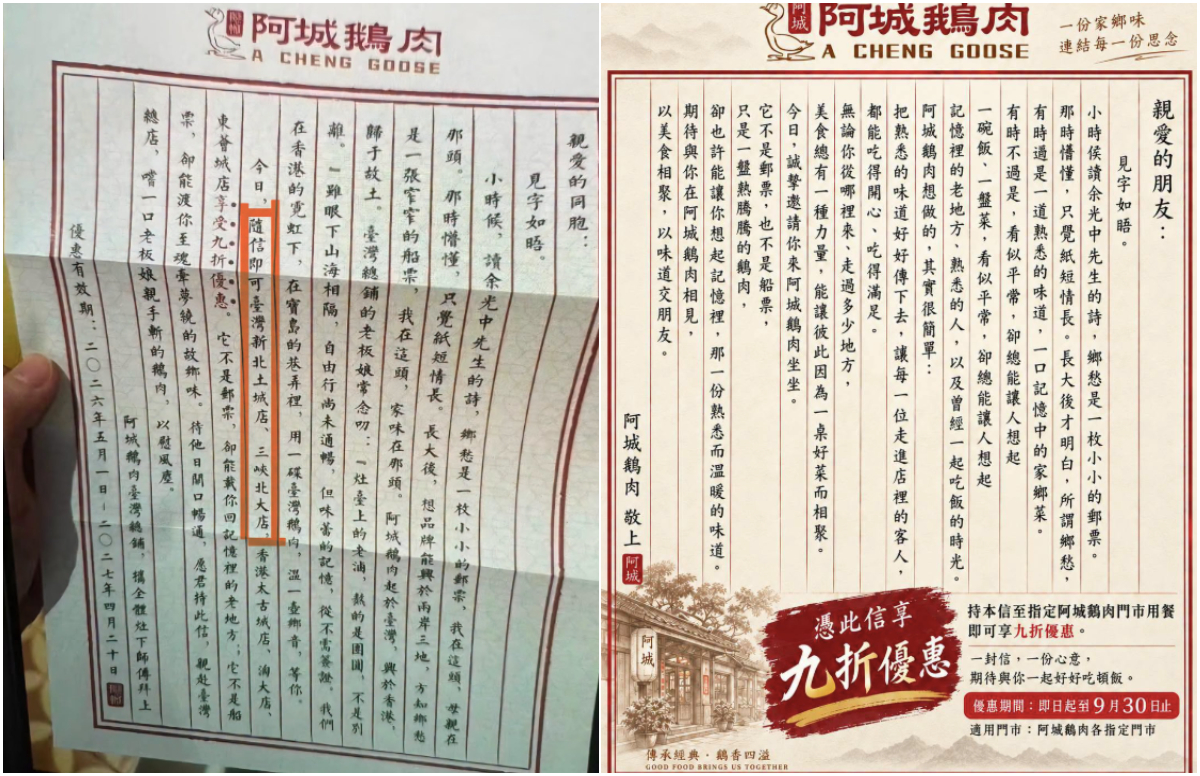 阿城鵝肉
A CHENG GOOSE
親愛的同胞：
見字如晤。
小時候，讀余光中先生的詩，鄉愁是一枚小小的郵票，我在這頭，母親在
那頭。那時懵懂，只覺紙短情長。長大後，想品牌能興於兩岸三地，方知鄉愁
是一張窄窄的船票，我在這頭，家味在那頭。阿城鵝肉起於臺灣，興於香港，
歸于故土。臺灣總鋪的老板娘常念叨：『灶臺上的老滷，熬的是團圓，不是別
離。『雖眼下山海相隔，自由行尚未通暢，但味蕾的記憶，從不需簽證。我們
在香港的霓虹下，在寶島的巷弄裡，用一碟臺灣鵝肉，溫一壺鄉音，等你。
今日，隨信即可臺灣新北土城店、三峽北大店，香港太古城店、淘大店、
東薈城店享受九折優惠。它不是郵票，卻能載你回記憶裡的老地方；它不是船
票，卻能渡你至魂牽夢繞的故鄉味。待他日關口暢通，愿君持此信，親赴臺灣
總店，嚐一口老板娘親手斬的鵝肉，以慰風塵。
阿城鵝肉臺灣總鋪，攜全體灶下師傅拜上
優惠有效期：二〇二六年五月一日-二〇二七年四月二十日
阿城鵝肉
A CHENG GOOSE
一份家鄉味
連結每一份思念
親愛的朋友：
見字如晤。
小時候讀余光中先生的詩，鄉愁是一枚小小的郵票。
那時懵懂，只覺紙短情長。長大後才明白，所謂鄉愁，
有時過是一道熟悉的味道，一口記憶中的家鄉菜。
有時不過是，看似平常，卻總能讓人想起
一碗飯、一盤菜，看似平常，卻總能讓人想起
記憶裡的老地方、熟悉的人，以及曾經一起吃飯的時光。
阿城鵝肉想做的，其實很簡單：
把熟悉的味道好好傳下去，讓每一位走進店裡的客人，
都能吃得開心、吃得滿足。
無論你從哪裡來、走過多少地方，
美食總有一種力量，能讓彼此因為一桌好菜而相聚。
今日，誠摯邀請你來阿城鵝肉坐坐。
它不是郵票，也不是船票，
只是一盤熱騰騰的鵝肉，
卻也許能讓你想起記憶裡，那一份熟悉而溫暖的味道。
期待與你在阿城鵝肉相見，
以美食相聚，以味道交朋友。
阿城鵝肉 敬上
阿城
阿城
憑此信享
九折優惠
持本信至指定阿城鵝肉門市用餐
即可享九折優惠。
一封信，一份心意，
期待與你一起好好吃頓飯。
優惠期間：即日起至9月30日止
適用門市：阿城鵝肉各指定門市
傳承經典·鵝香四溢
GOOD FOOD BRINGS US TOGETHER